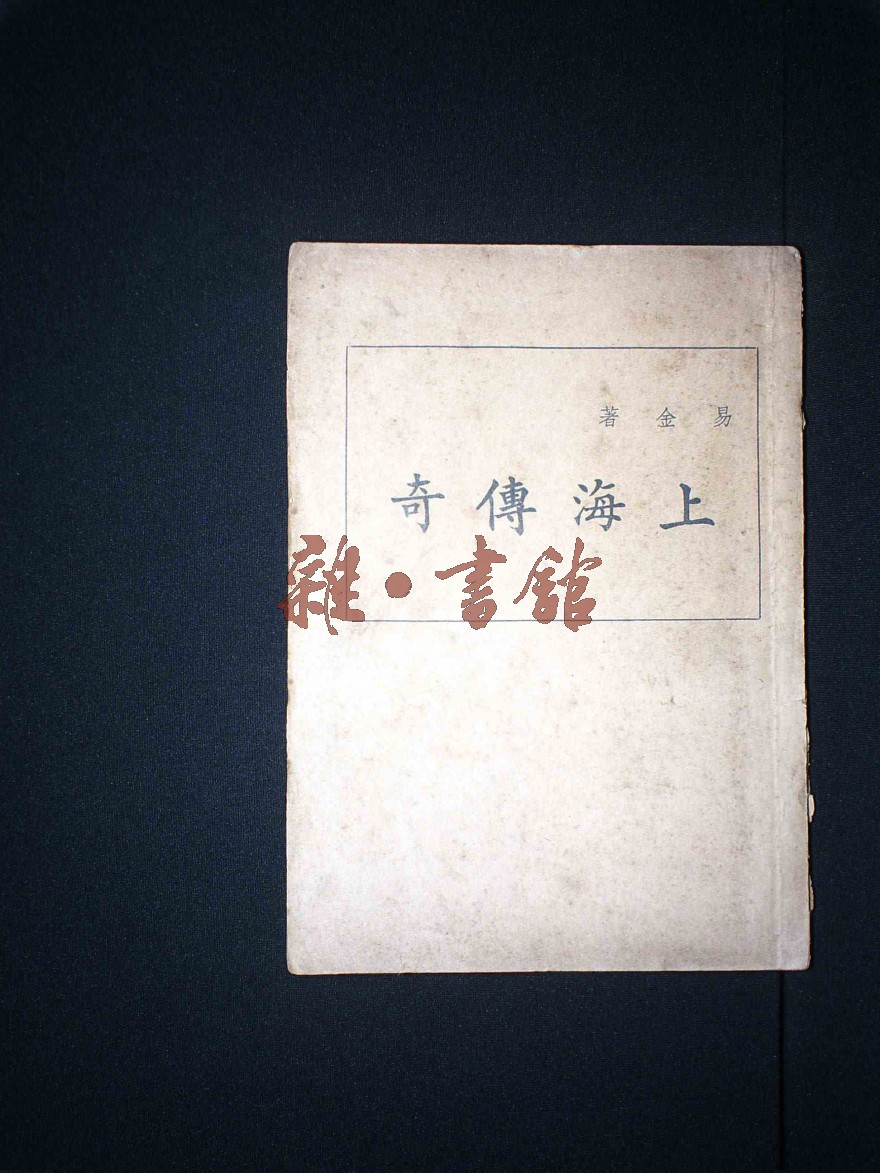 易金著
上海傳奇
雜·書館